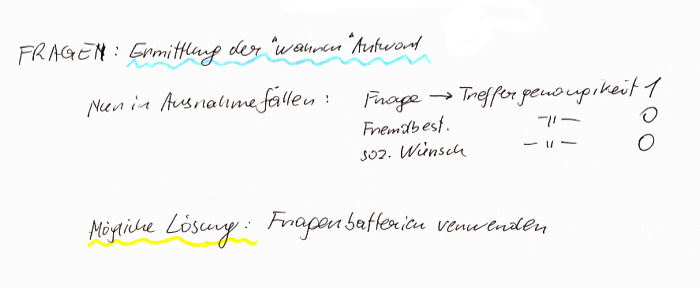 FRAGEN: Ermittlung der "wahren" Antwort
Nur in Ausnahmefällen: Frage → Treffergenauigkeit 1
Fremdbest. -"- 0
soz. Wünsch -"- 0
Mögliche Lösung: Fragenbatterien verwenden